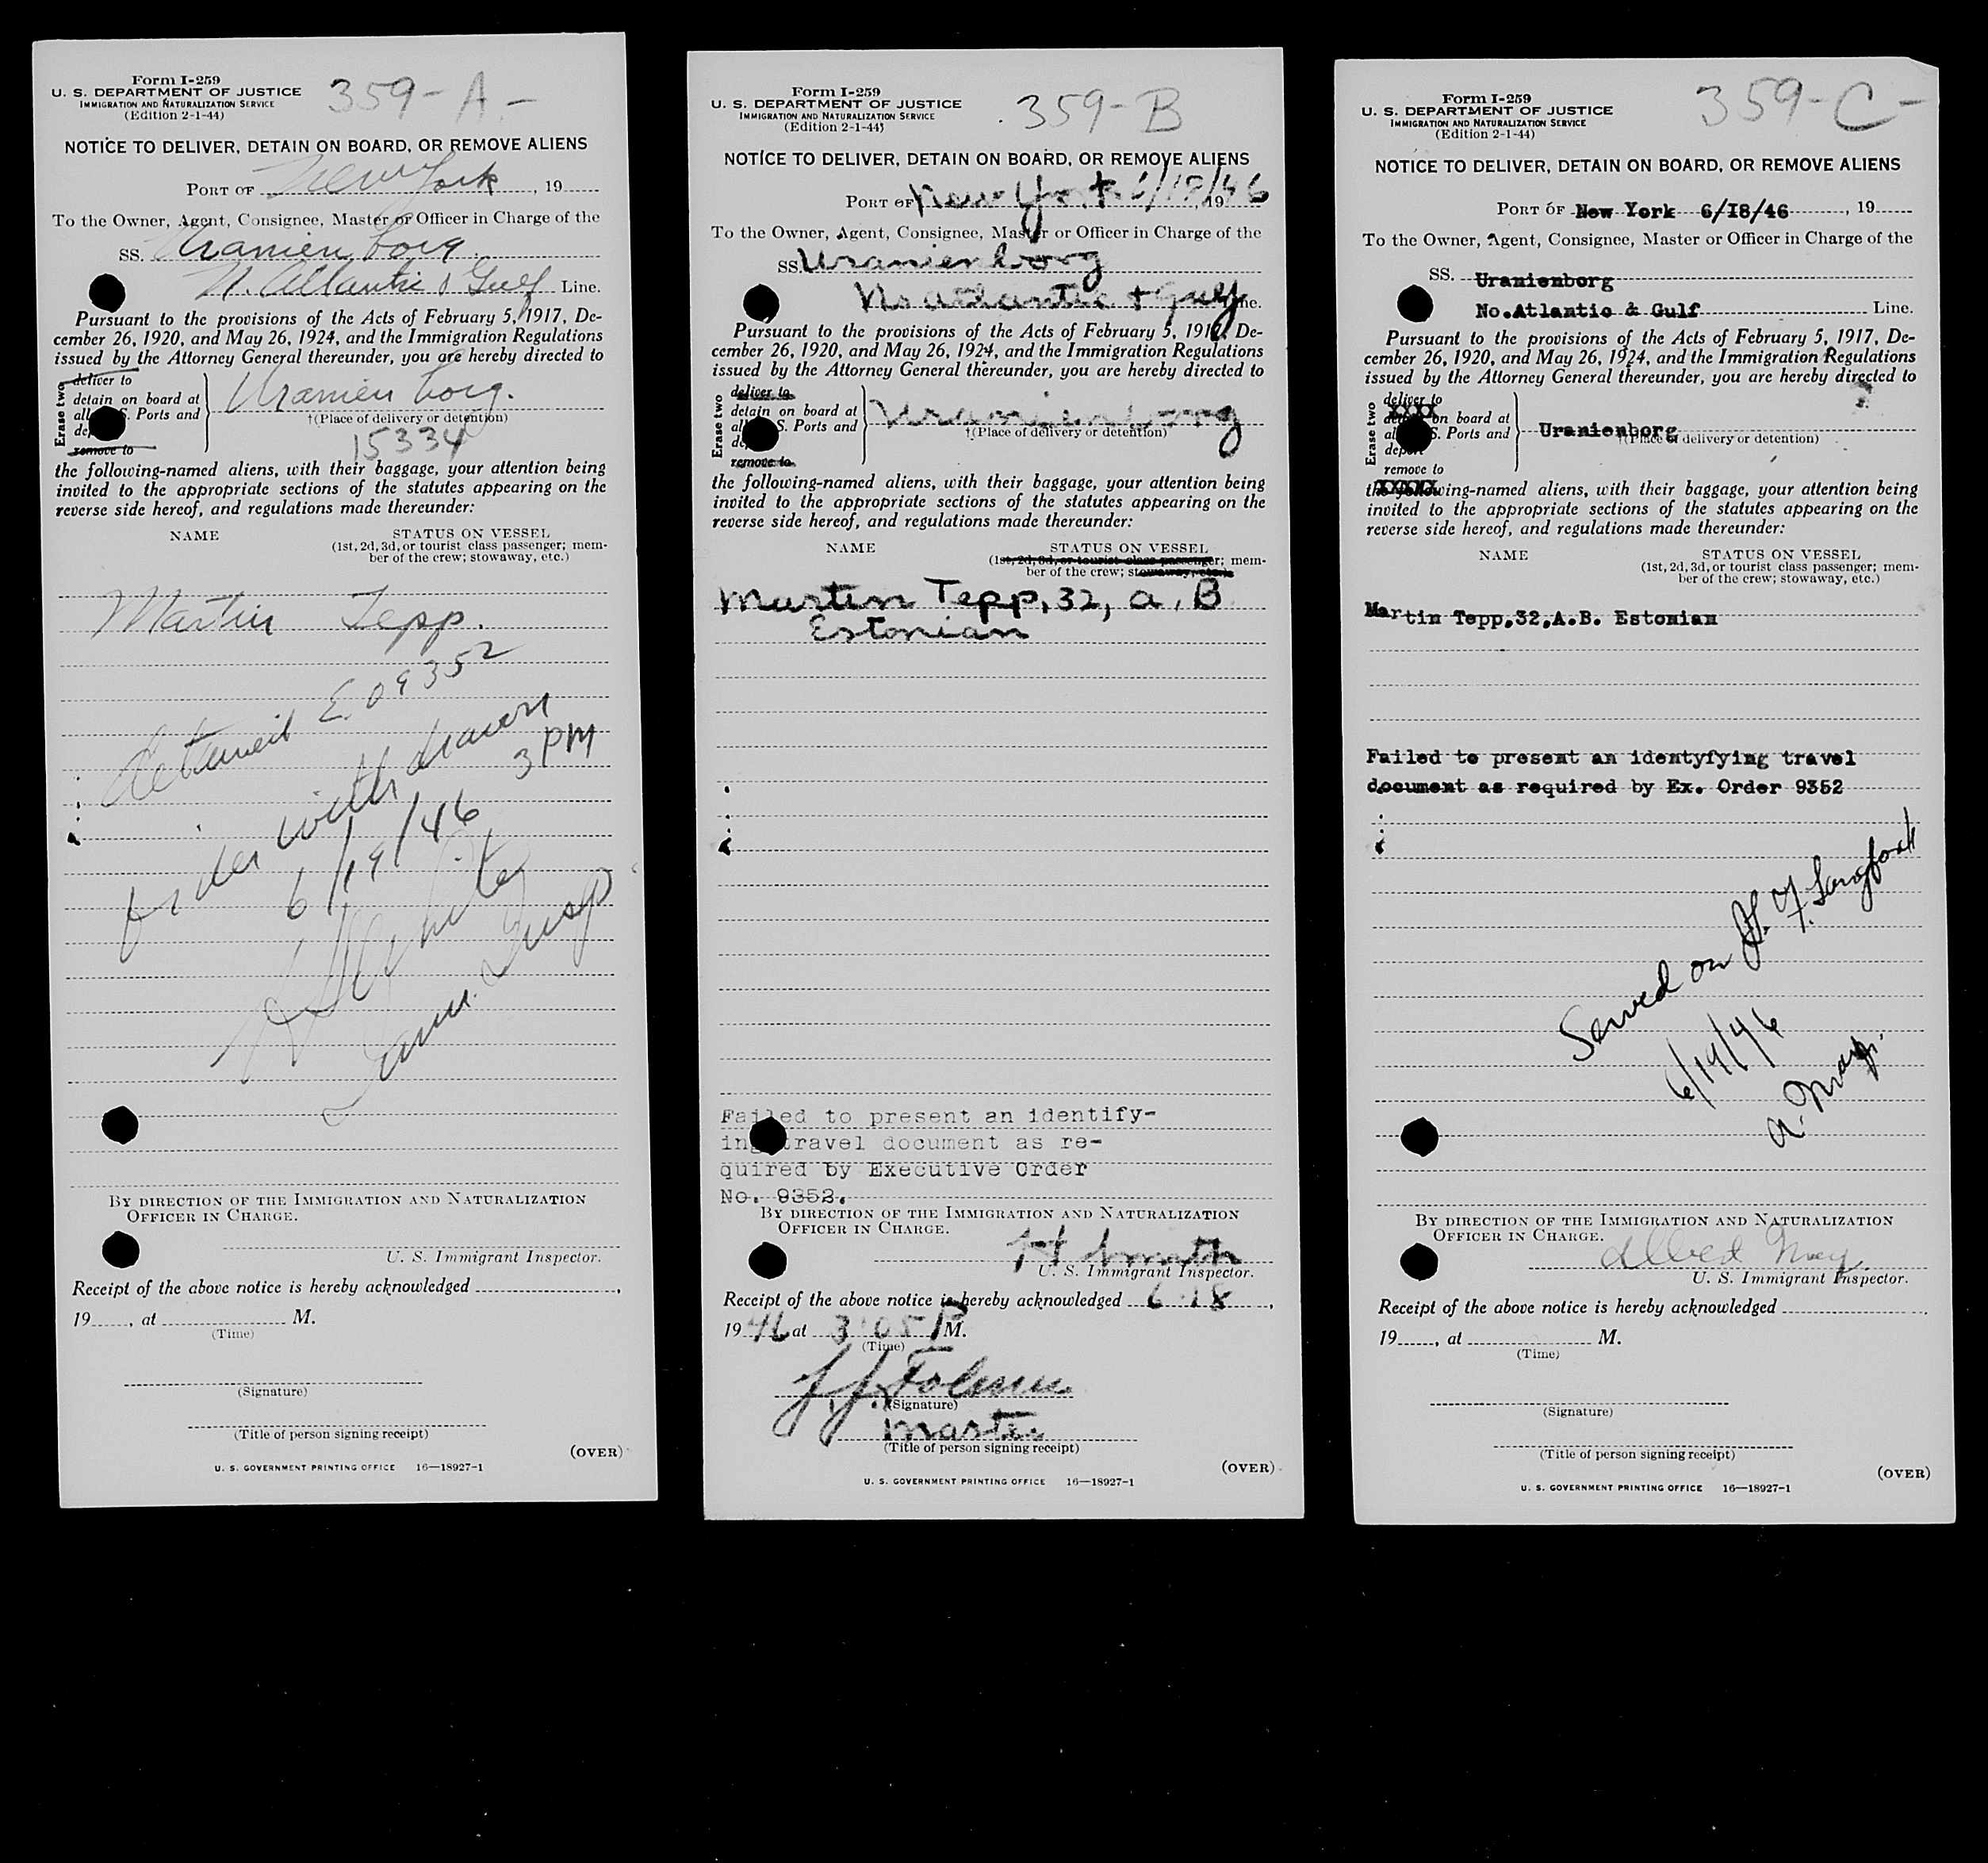 Form I-259
U. S. DEPARTMENT OF JUSTICE
IMMIGRATION AND NATURALIZATION SERVICE
(Edition 2-1-44)
359-A-
NOTICE TO DELIVER, DETAIN ON BOARD, OR REMOVE ALIENS
PORT OF New York, 19
To the Owner, Agent, Consignee, Master or Officer in Charge of the
SS. Uranienborg
N. Atlantic & Gulf Line.
Pursuant to the provisions of the Acts of February 5, 1917, De-
cember 26, 1920, and May 26, 1924, and the Immigration Regulations
issued by the Attorney General thereunder, you are hereby directed to
Erase two
deliver to
detain on board at
all S. Ports and
de
remove to
Uranienborg.
†(Place of delivery or detention)
15334
the following-named aliens, with their baggage, your attention being
invited to the appropriate sections of the statutes appearing on the
reverse side hereof, and regulations made thereunder:
NAME
STATUS ON VESSEL
(1st, 2d, 3d, or tourist class passenger; mem-
ber of the crew; stowaway, etc.)
Martin Tepp.
E.O 9352
detained
order withdrawn
3 PM
6/19/46
Imm. Insp
BY DIRECTION OF THE IMMIGRATION AND NATURALIZATION
OFFICER IN CHARGE.
U. S. Immigrant Inspector.
Receipt of the above notice is hereby acknowledged
19, at M.
(Time)
(Signature)
(Title of person signing receipt)
(OVER)
U. S. GOVERNMENT PRINTING OFFICE 16—18927-1
Form I-259
U. S. DEPARTMENT OF JUSTICE
IMMIGRATION AND NATURALIZATION SERVICE
(Edition 2-1-44)
359-B
NOTICE TO DELIVER, DETAIN ON BOARD, OR REMOVE ALIENS
PORT OF New York 6/18/46, 19
To the Owner, Agent, Consignee, Master or Officer in Charge of the
SS. Uranienborg
No Atlantic & Gulf Line.
Pursuant to the provisions of the Acts of February 5, 1917, De-
cember 26, 1920, and May 26, 1924, and the Immigration Regulations
issued by the Attorney General thereunder, you are hereby directed to
Erase two
deliver to
detain on board at
al S. Ports and
de
remove to
Uranienborg
†(Place of delivery or detention)
the following-named aliens, with their baggage, your attention being
invited to the appropriate sections of the statutes appearing on the
reverse side hereof, and regulations made thereunder:
NAME
STATUS ON VESSEL
(1st, 2d, 3d, or tourist class passenger; mem-
ber of the crew; stowaway, etc.)
Martin Tepp, 32, a, B
Estonian
Failed to present an identify-
ing travel document as re-
quired by Executive Order
No. 9352.
BY DIRECTION OF THE IMMIGRATION AND NATURALIZATION
OFFICER IN CHARGE.
H Smith
U. S. Immigrant Inspector.
Receipt of the above notice is hereby acknowledged 6-18,
1946 at 3:05 P M.
(Time)
(Signature)
Master
(Title of person signing receipt)
(OVER)
U. S. GOVERNMENT PRINTING OFFICE 16—18927-1
Form I-259
U. S. DEPARTMENT OF JUSTICE
IMMIGRATION AND NATURALIZATION SERVICE
(Edition 2-1-44)
359-C-
NOTICE TO DELIVER, DETAIN ON BOARD, OR REMOVE ALIENS
PORT OF New York 6/18/46, 19
To the Owner, Agent, Consignee, Master or Officer in Charge of the
SS. Uranienborg
No.Atlantic & Gulf Line.
Pursuant to the provisions of the Acts of February 5, 1917, De-
cember 26, 1920, and May 26, 1924, and the Immigration Regulations
issued by the Attorney General thereunder, you are hereby directed to
Erase two
deliver to
XXXX
detain on board at
al S. Ports and
deport
remove to
XXXXX
Uranienborg
†(Place of delivery or detention)
the following-named aliens, with their baggage, your attention being
invited to the appropriate sections of the statutes appearing on the
reverse side hereof, and regulations made thereunder:
NAME
STATUS ON VESSEL
(1st, 2d, 3d, or tourist class passenger; mem-
ber of the crew; stowaway, etc.)
Martin Tepp,32,A.B. Estonian
Failed to present an identyfying travel
document as required by Ex. Order 9352
Served on
6/19/46
BY DIRECTION OF THE IMMIGRATION AND NATURALIZATION
OFFICER IN CHARGE.
U. S. Immigrant Inspector.
Receipt of the above notice is hereby acknowledged
19, at M.
(Time)
(Signature)
(Title of person signing receipt)
(OVER)
U. S. GOVERNMENT PRINTING OFFICE 16—18927-1